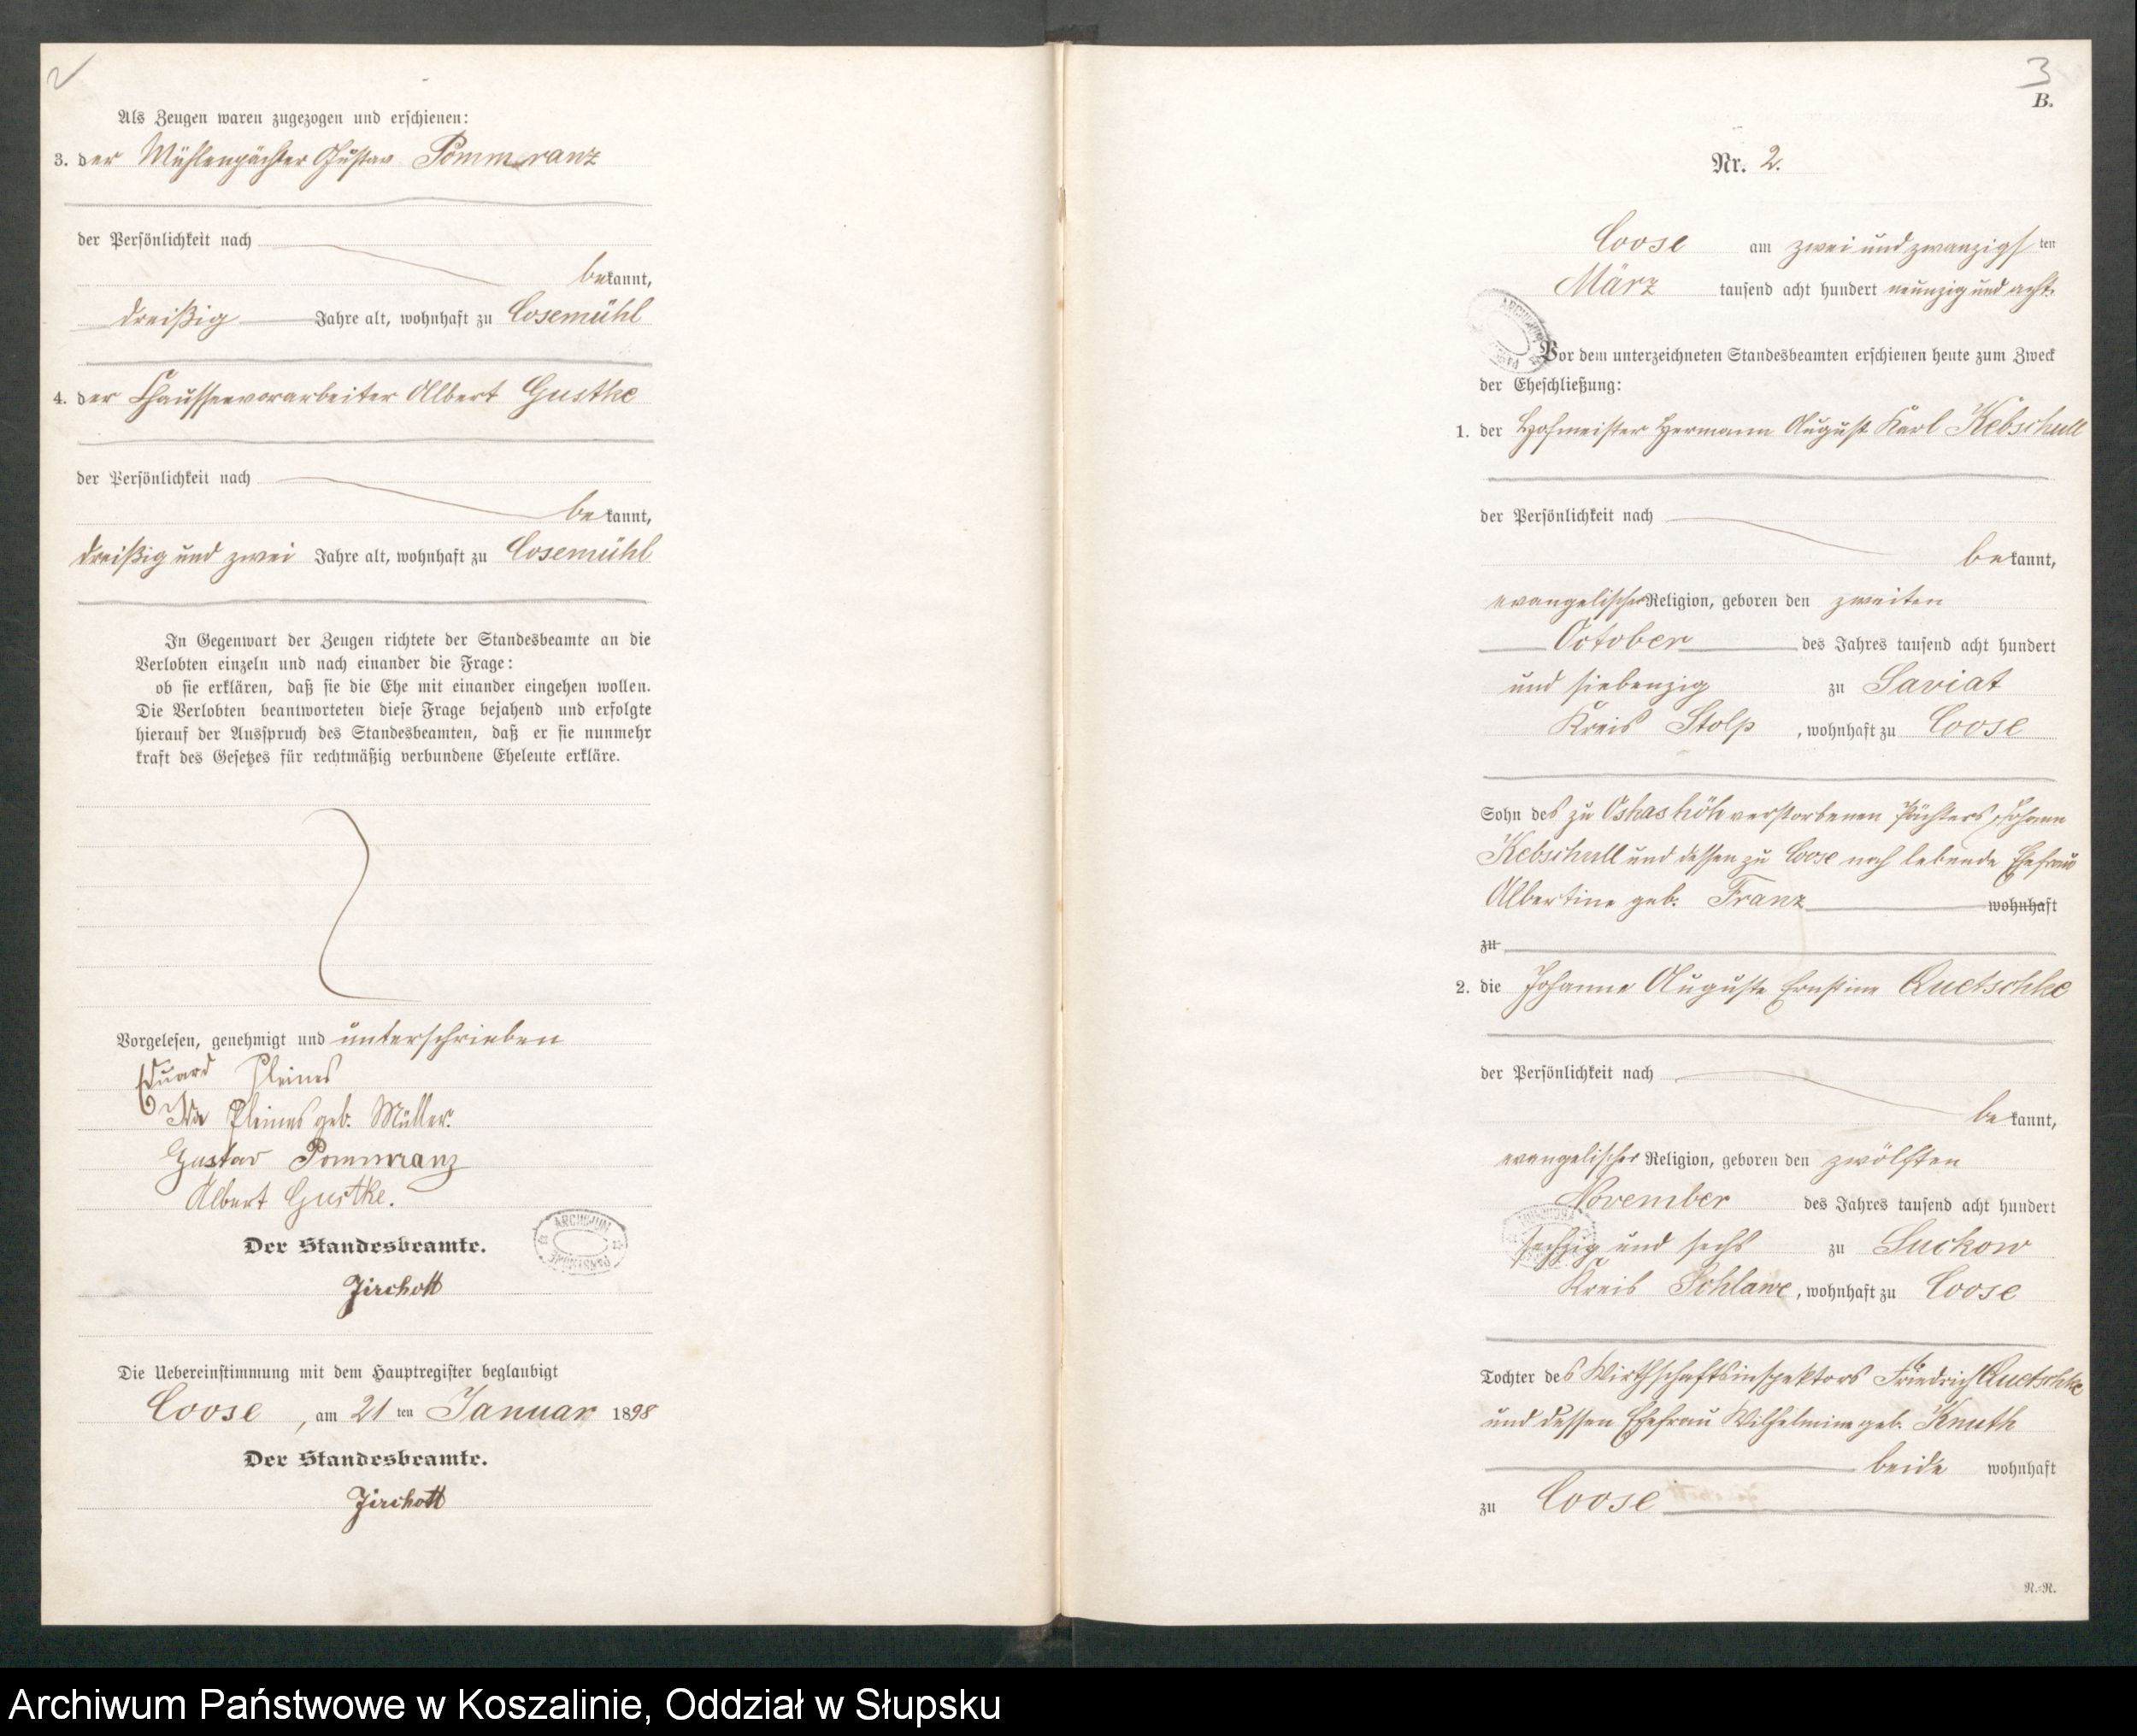 2
Als Zeugen waren zugezogen und erschienen:
3. der Mühlenpächter Gustav Pommranz
der Persönlichkeit nach
bekannt,
dreißig Jahre alt, wohnhaft zu Cosemühl
4. der Chausseevorarbeiter Albert Gustke
der Persönlichkeit nach
bekannt,
dreißig und zwei Jahre alt, wohnhaft zu Cosemühl
In Gegenwart der Zeugen richtete der Standesbeamte an die
Verlobten einzeln und nach einander die Frage:
ob sie erklären, daß sie die Ehe mit einander eingehen wollen.
Die Verlobten beantworteten diese Frage bejahend und erfolgte
hierauf der Ausspruch des Standesbeamten, daß er sie nunmehr
kraft des Gesetzes für rechtmäßig verbundene Eheleute erkläre.
Vorgelesen, genehmigt und unterschrieben
Eduard Pleines
Ida Pleines geb. Müller.
Gustav Pommranz
Albert Gustke.
Der Standesbeamte.
Zirchott
Die Uebereinstimmung mit dem Hauptregister beglaubigt
Coose, am 21ten Januar 1898
Der Standesbeamte.
Zirchott
3
B.
Nr. 2.
Coose am zwei und zwanzigsten
März tausend acht hundert neunzig und acht.
Vor dem unterzeichneten Standesbeamten erschienen heute zum Zweck
der Eheschließung:
1. der Hofmeister Hermann August Karl Kebschull
der Persönlichkeit nach
bekannt,
evangelischer Religion, geboren den zweiten
October des Jahres tausend acht hundert
und siebenzig zu Saviat
Kreis Stolp, wohnhaft zu Coose
Sohn des zu verstorbenen Pächters Johann
Kebschull und dessen zu Coose noch lebende Ehefrau
Albertine geb. Franz wohnhaft
zu
2. die Johanne Auguste Ernstine Quetschke
der Persönlichkeit nach
bekannt,
evangelischer Religion, geboren den zwölften
November des Jahres tausend acht hundert
sechzig und sechs zu Suckow
Kreis Schlawe, wohnhaft zu Coose
Tochter des Wirthschaftsinspektors Friedrich Quetschke
und dessen Ehefrau Wilhelmine geb. Knuth
beide wohnhaft
zu Coose
R.-R.
Archiwum Państwowe w Koszalinie, Oddział w Słupsku